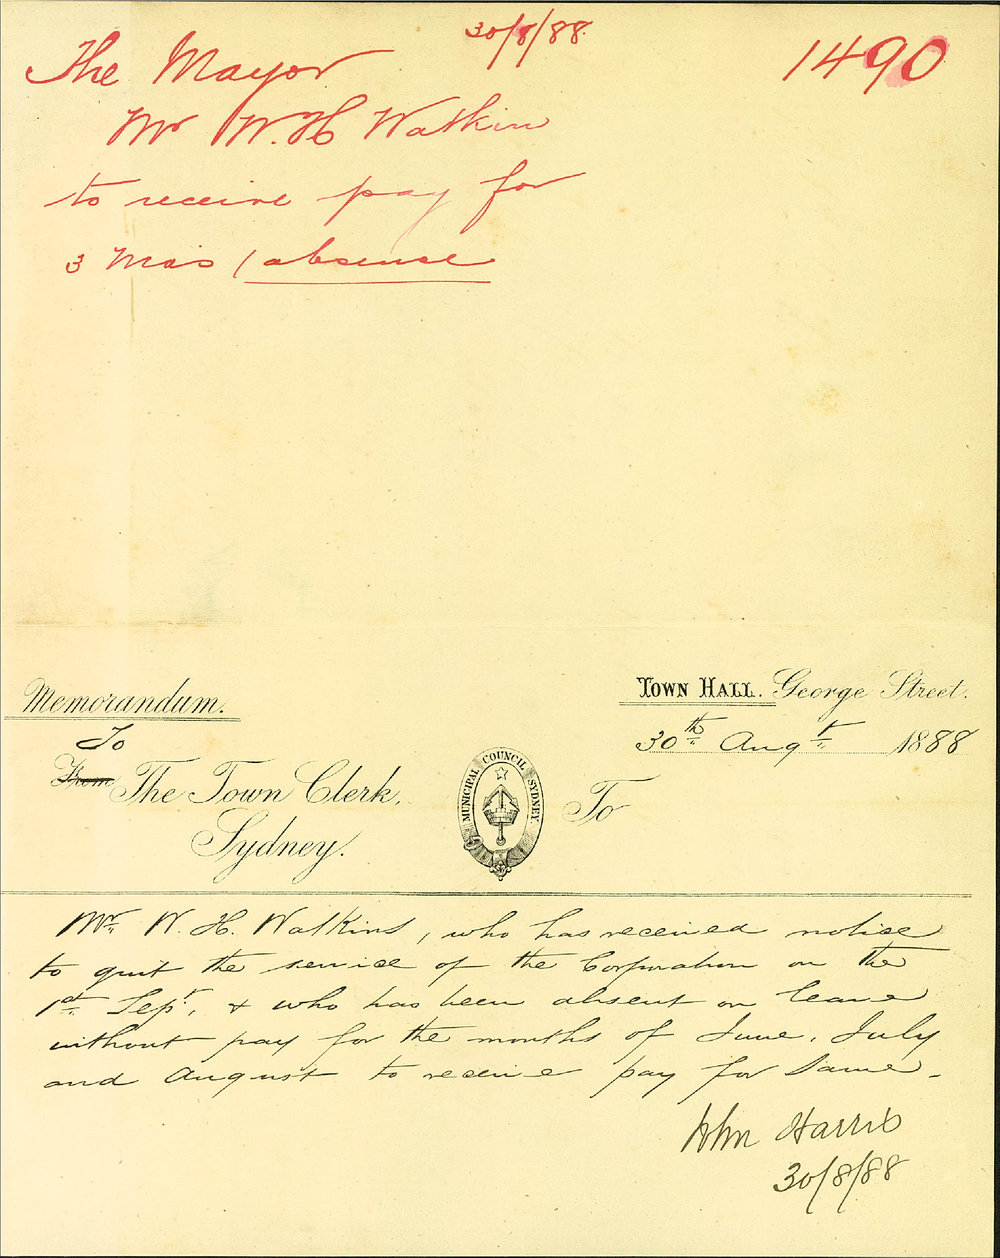 30/8/88.
1490
The Mayor
Mr W. H Watkin
to receive pay for
3 Mos absense
Memorandum.
TOWN HALL. George Street.
To
30th Augt 1888
From The Town Clerk,
Sydney.
MUNICIPAL COUNCIL SYDNEY
To
Mr. W. H. Watkins, who has received notice
to quit the service of the Corporation on the
1st Sept, & who has been absent on leave
without pay for the months of June, July
and August to receive pay for same.
John Harris
30/8/88